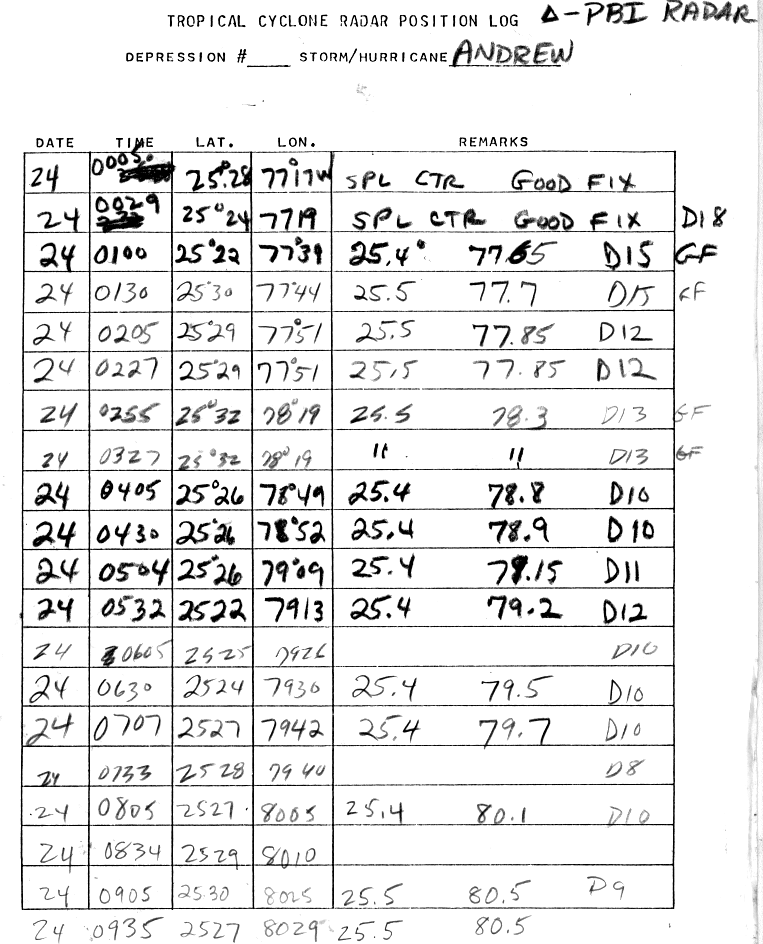 TROPICAL CYCLONE RADAR POSITION LOG Δ-PBI RADAR
DEPRESSION #____ STORM/HURRICANE ANDREW
DATE TIME LAT. LON. REMARKS
24 0005. 25°28 77°17W SPL CTR GOOD FIX
24 0029 25°24 7719 SPL CTR GOOD FIX D18
24 0100 25°22 77°39 25.4° 77.65 D15 GF
24 0130 25°30 77°44 25.5 77.7 D15 GF
24 0205 25°29 77°51 25.5 77.85 D12
24 0227 25°29 77°51 25.5 77.85 D12
24 0255 25°32 78°19 25.5 78.3 D13 GF
24 0327 25°32 78°19 " " D13 GF
24 0405 25°26 78°49 25.4 78.8 D10
24 0430 25°26 78°52 25.4 78.9 D10
24 0504 25°26 79°09 25.4 79.15 D11
24 0532 2522 7913 25.4 79.2 D12
24 0605 2525 7926 D10
24 0630 2524 7930 25.4 79.5 D10
24 0707 2527 7942 25.4 79.7 D10
24 0733 2528 7940 D8
24 0805 2527 8005 25.4 80.1 D10
24 0834 2529 8010
24 0905 25.30 8025 25.5 80.5 D9
24 0935 2527 8029 25.5 80.5